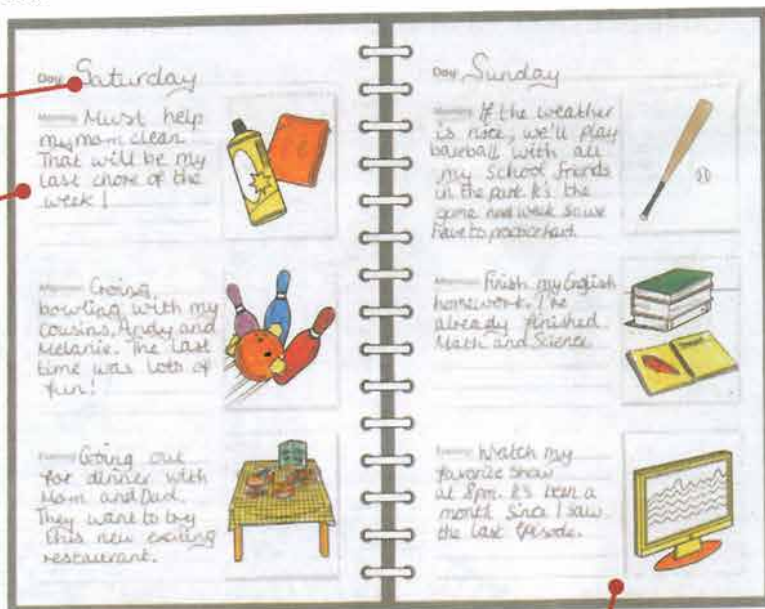 Day Saturday
Morning Must help
my mom clean.
That will be my
last chore of the
week!
Going
bowling with my
cousins, Andy and
Melanie. The last
time was lots of
fun!
Evening Going out
for dinner with
Mom and Dad.
They want to try
this new exciting
restaurant.
Day Sunday
Morning If the weather
is nice, we'll play
baseball with all
my school friends
in the park. It's the
game next week so we
have to practice hard.
Finish my English
homework. I've
already finished
Math and Science
Evening Watch my
favorite show
at 8pm. It's been a
month since I saw
the last episode.